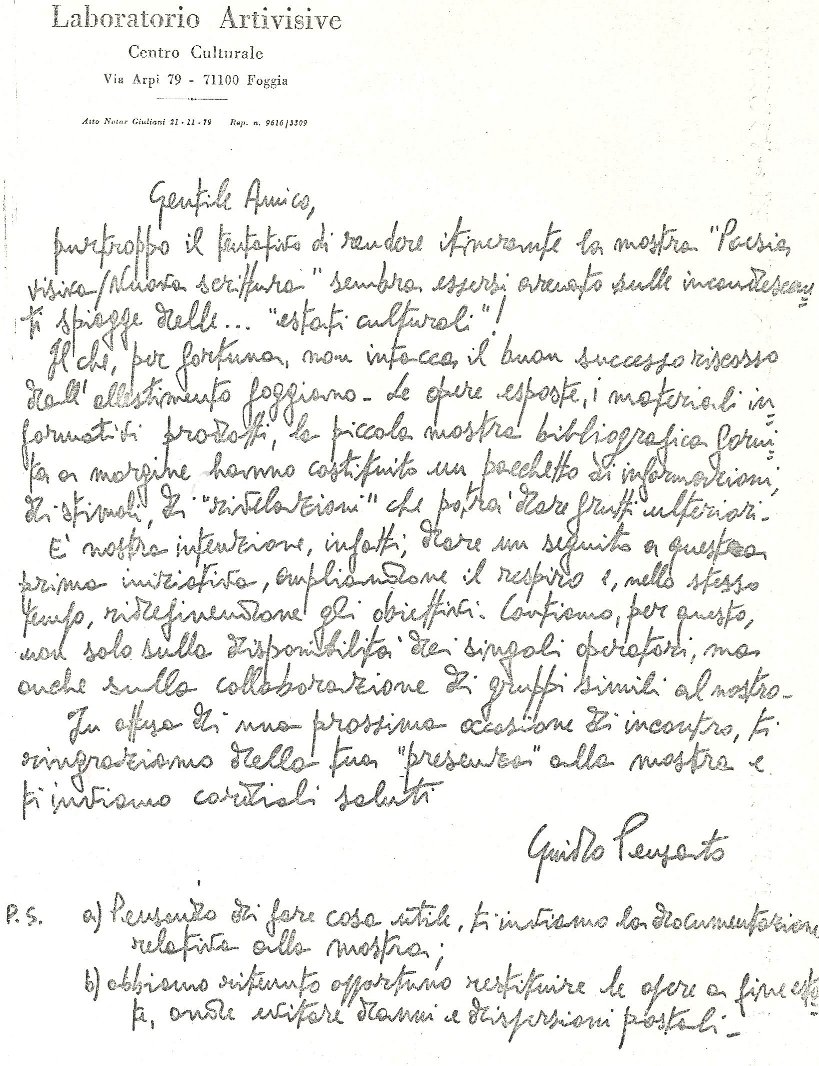 Laboratorio Artivisive
Centro Culturale
Via Arpi 79 - 71100 Foggia
Atto Notar Giuliani 21 - 11 - 79 Rep. n. 9616/3309
Gentile Amico,
purtroppo il tentativo di rendere itinerante la mostra "Poesia
visiva/Nuova scrittura" sembra essersi arenato sulle incandescen
ti spiagge delle... "estati culturali"!
Il che, per fortuna, non intacca il buon successo riscosso
dall'allestimento foggiano - Le opere esposte, i materiali in
formativi prodotti, la piccola mostra bibliografica forni
ta a margine hanno costituito un pacchetto di informazioni,
di stimoli, di "rivelazioni" che potrà dare frutti ulteriori.
E' nostra intenzione, infatti, dare un seguito a questa
prima iniziativa, ampliandone il respiro e, nello stesso
tempo, ridefinendone gli obiettivi. Contiamo, per questo,
non solo sulla disponibilità dei singoli operatori, ma
anche sulla collaborazione di gruppi simili al nostro -
In attesa di una prossima occasione di incontro, ti
ringraziamo della tua "presenza" alla mostra e
ti inviamo cordiali saluti
Guido Pensato
P.S. a) Pensando di fare cosa utile, ti inviamo la documentazione
relativa alla mostra;
b) abbiamo ritenuto opportuno restituire le opere a fine esta
te, onde evitare danni e dispersioni postali -